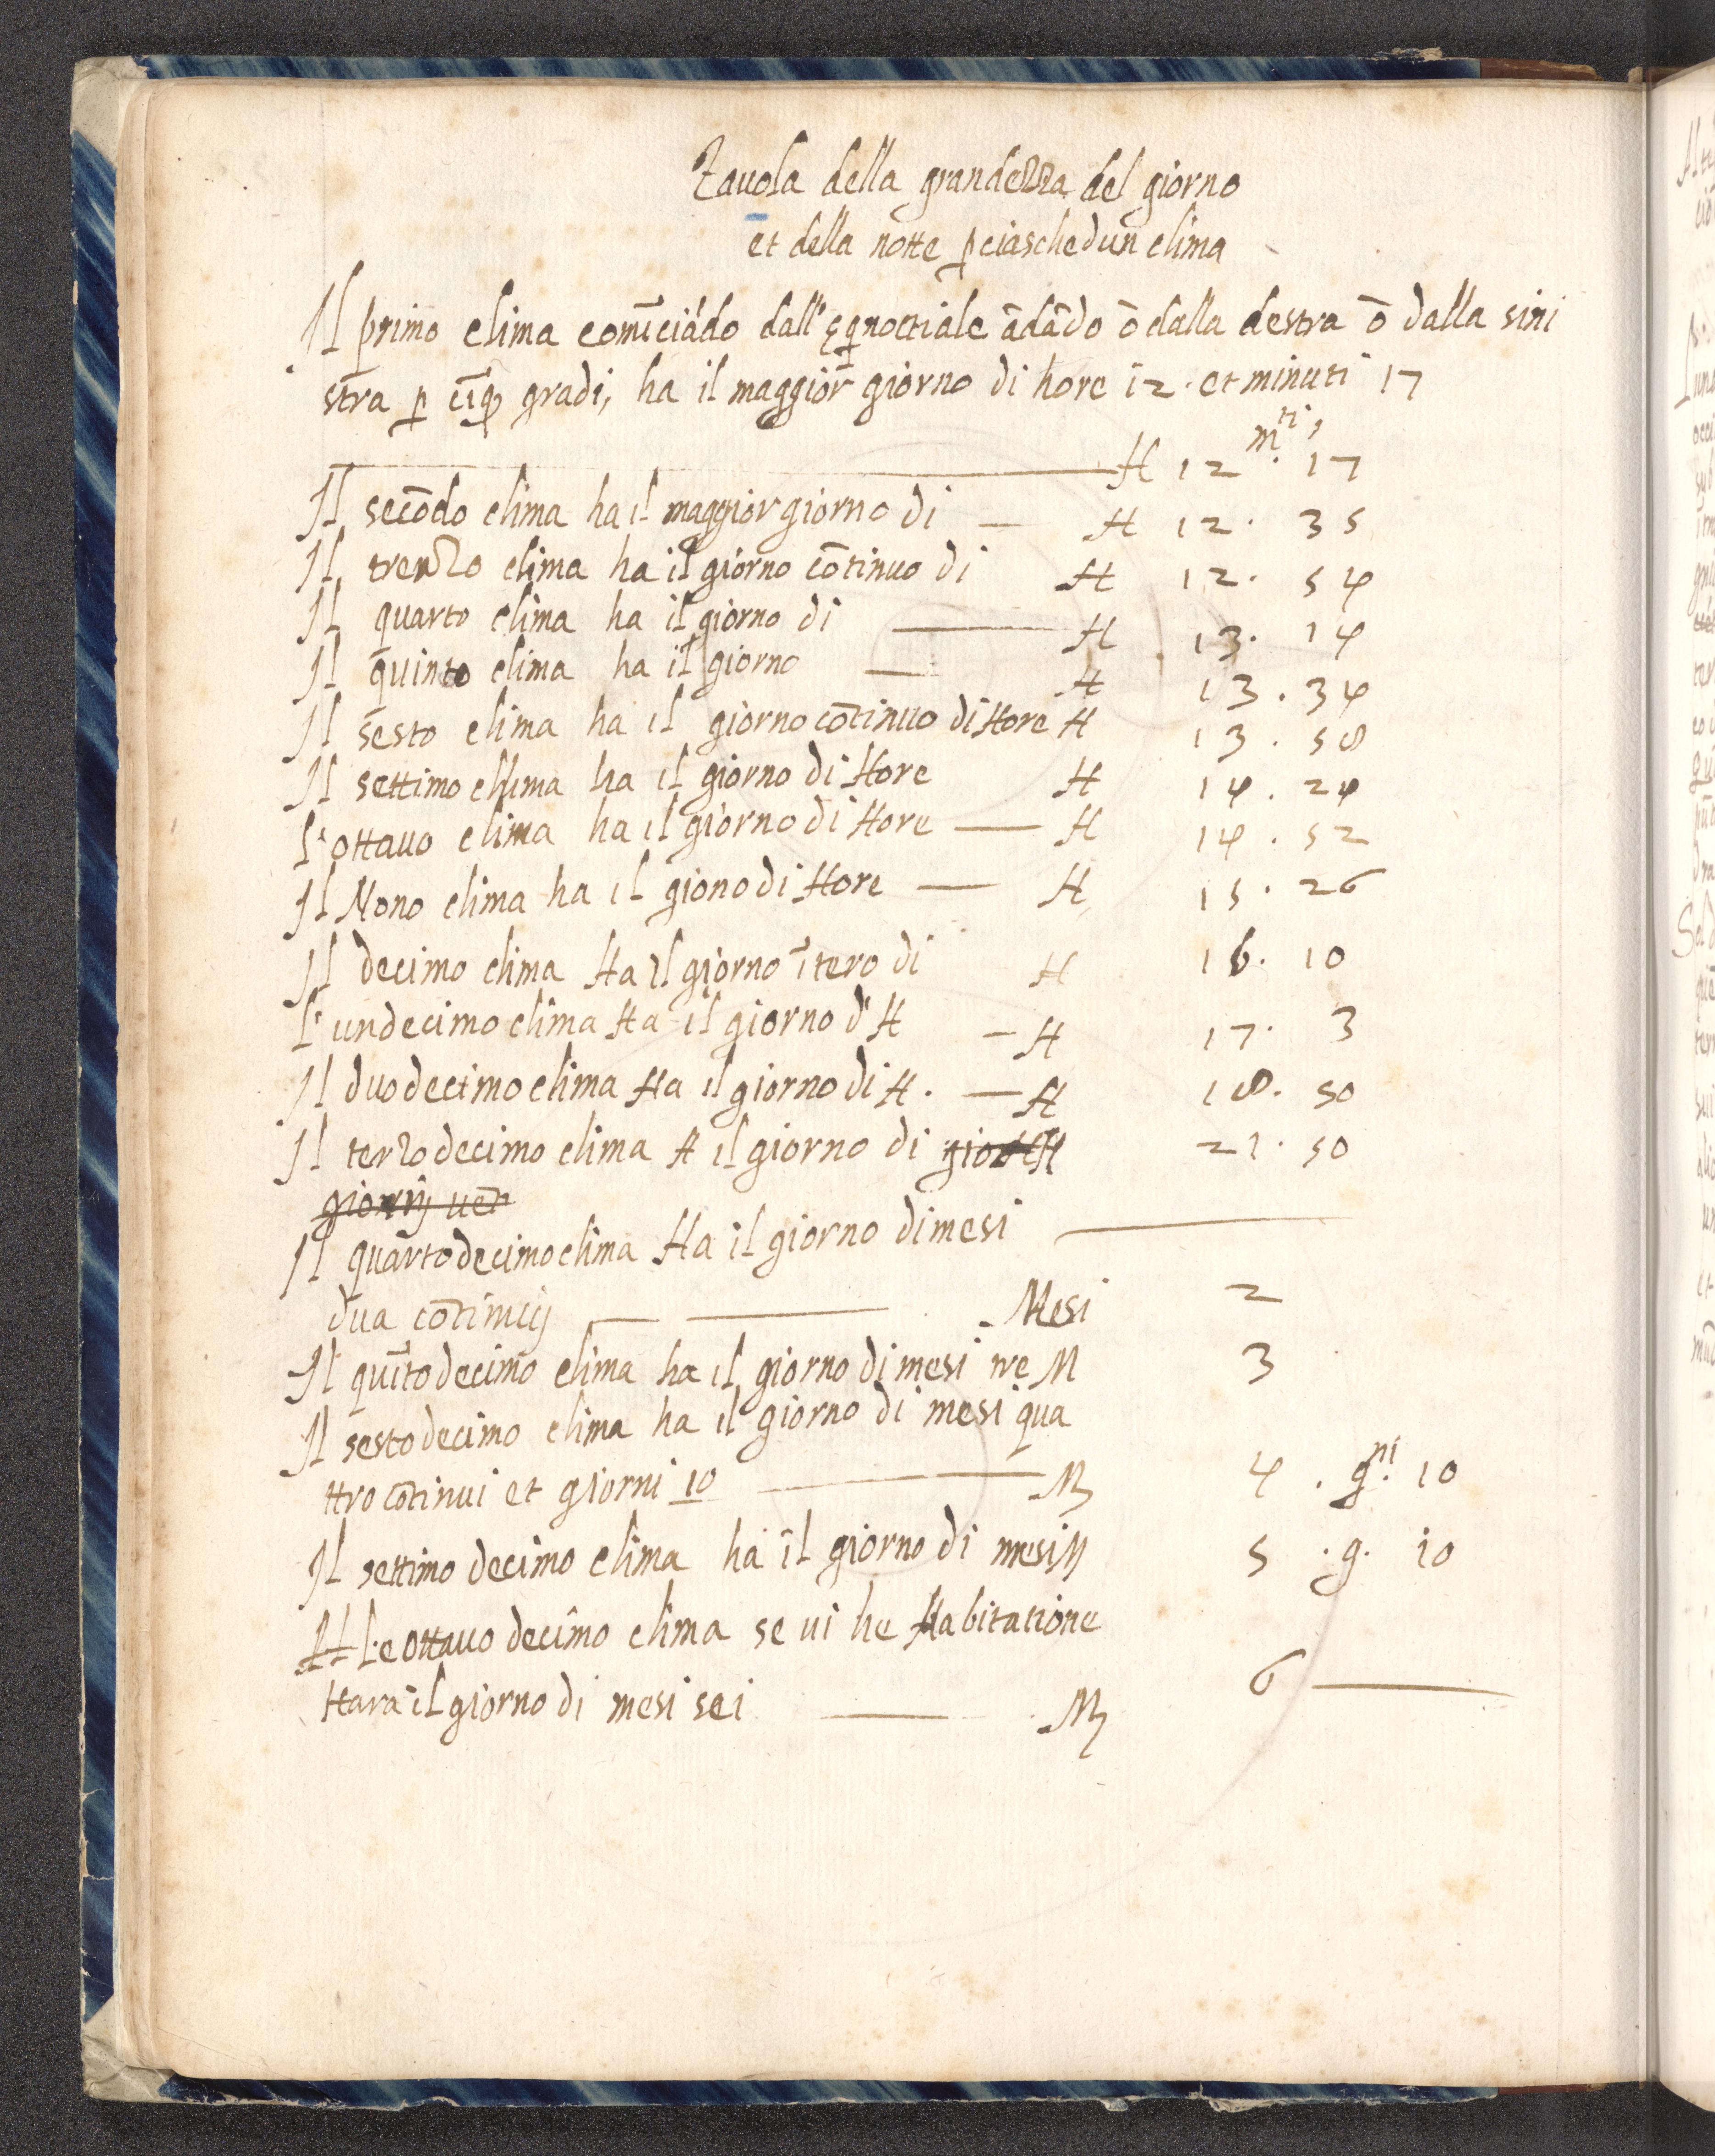 Tauola della grandezza del giorno
et della notte p ciaschedun clima
Il primo clima comĩciãdo dall' eqnoctiale ãdãdo õ dalla destra õ dalla sini
stra p cĩq gradi, ha il maggior giorno di hore 12. et minuti 17
H 12 m.ti 17
Il secõdo clima ha il maggior giorno di — H 12. 35
Il trenzo clima ha il giorno cõtinuo di H 12. 54
Il quarto clima ha il giorno di — H 13. 14
Il quinto clima ha il giorno — H 13. 34
Il sesto clima ha il giorno cõtinuo di Hore H 13. 58
Il settimo clima ha il giorno di Hore H 14. 24
L'ottauo clima ha il giorno di Hore — H 14. 52
Il Nono clima ha il giono di Hore — H 15. 26
Il decimo clima Ha il giorno ĩtero di H 16. 10
L'undecimo clima Ha il giorno d'H — H 17. 3
Il duodecimo clima Ha il giorno di H. — H 18. 50
Il terzodecimo clima H il giorno di gior H 21. 50
giornij uen
Il quartodecimo clima Ha il giorno di mesi —
dua cõtinuij — — Mesi 2
Il quĩtodecimo clima ha il giorno di mesi tre M 3
Il sestodecimo clima ha il giorno di mesi qua
ttro cõtinui et giorni 10 — M 4. g.ni 10
Il settimo decimo clima ha il giorno di mesi M 5. g. 10
Il L'e ottauo decimo clima se ui he Habitatione
Hara il giorno di mesi sei — M 6 —